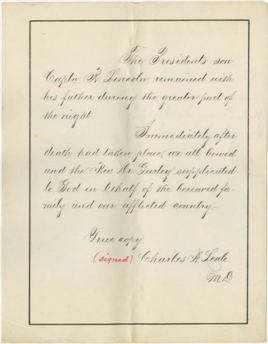 The Presidents son
Capta R. Lincoln, remained with
his father during the greater part of
the night.
Immediately after
death had taken place, we all bowed
and the Rev. Dr. Gurley supplicated
to God in behalf of the bereaved fa-
mily and our afflicted country.
True copy
(signed) Charles A. Leale
M.D.